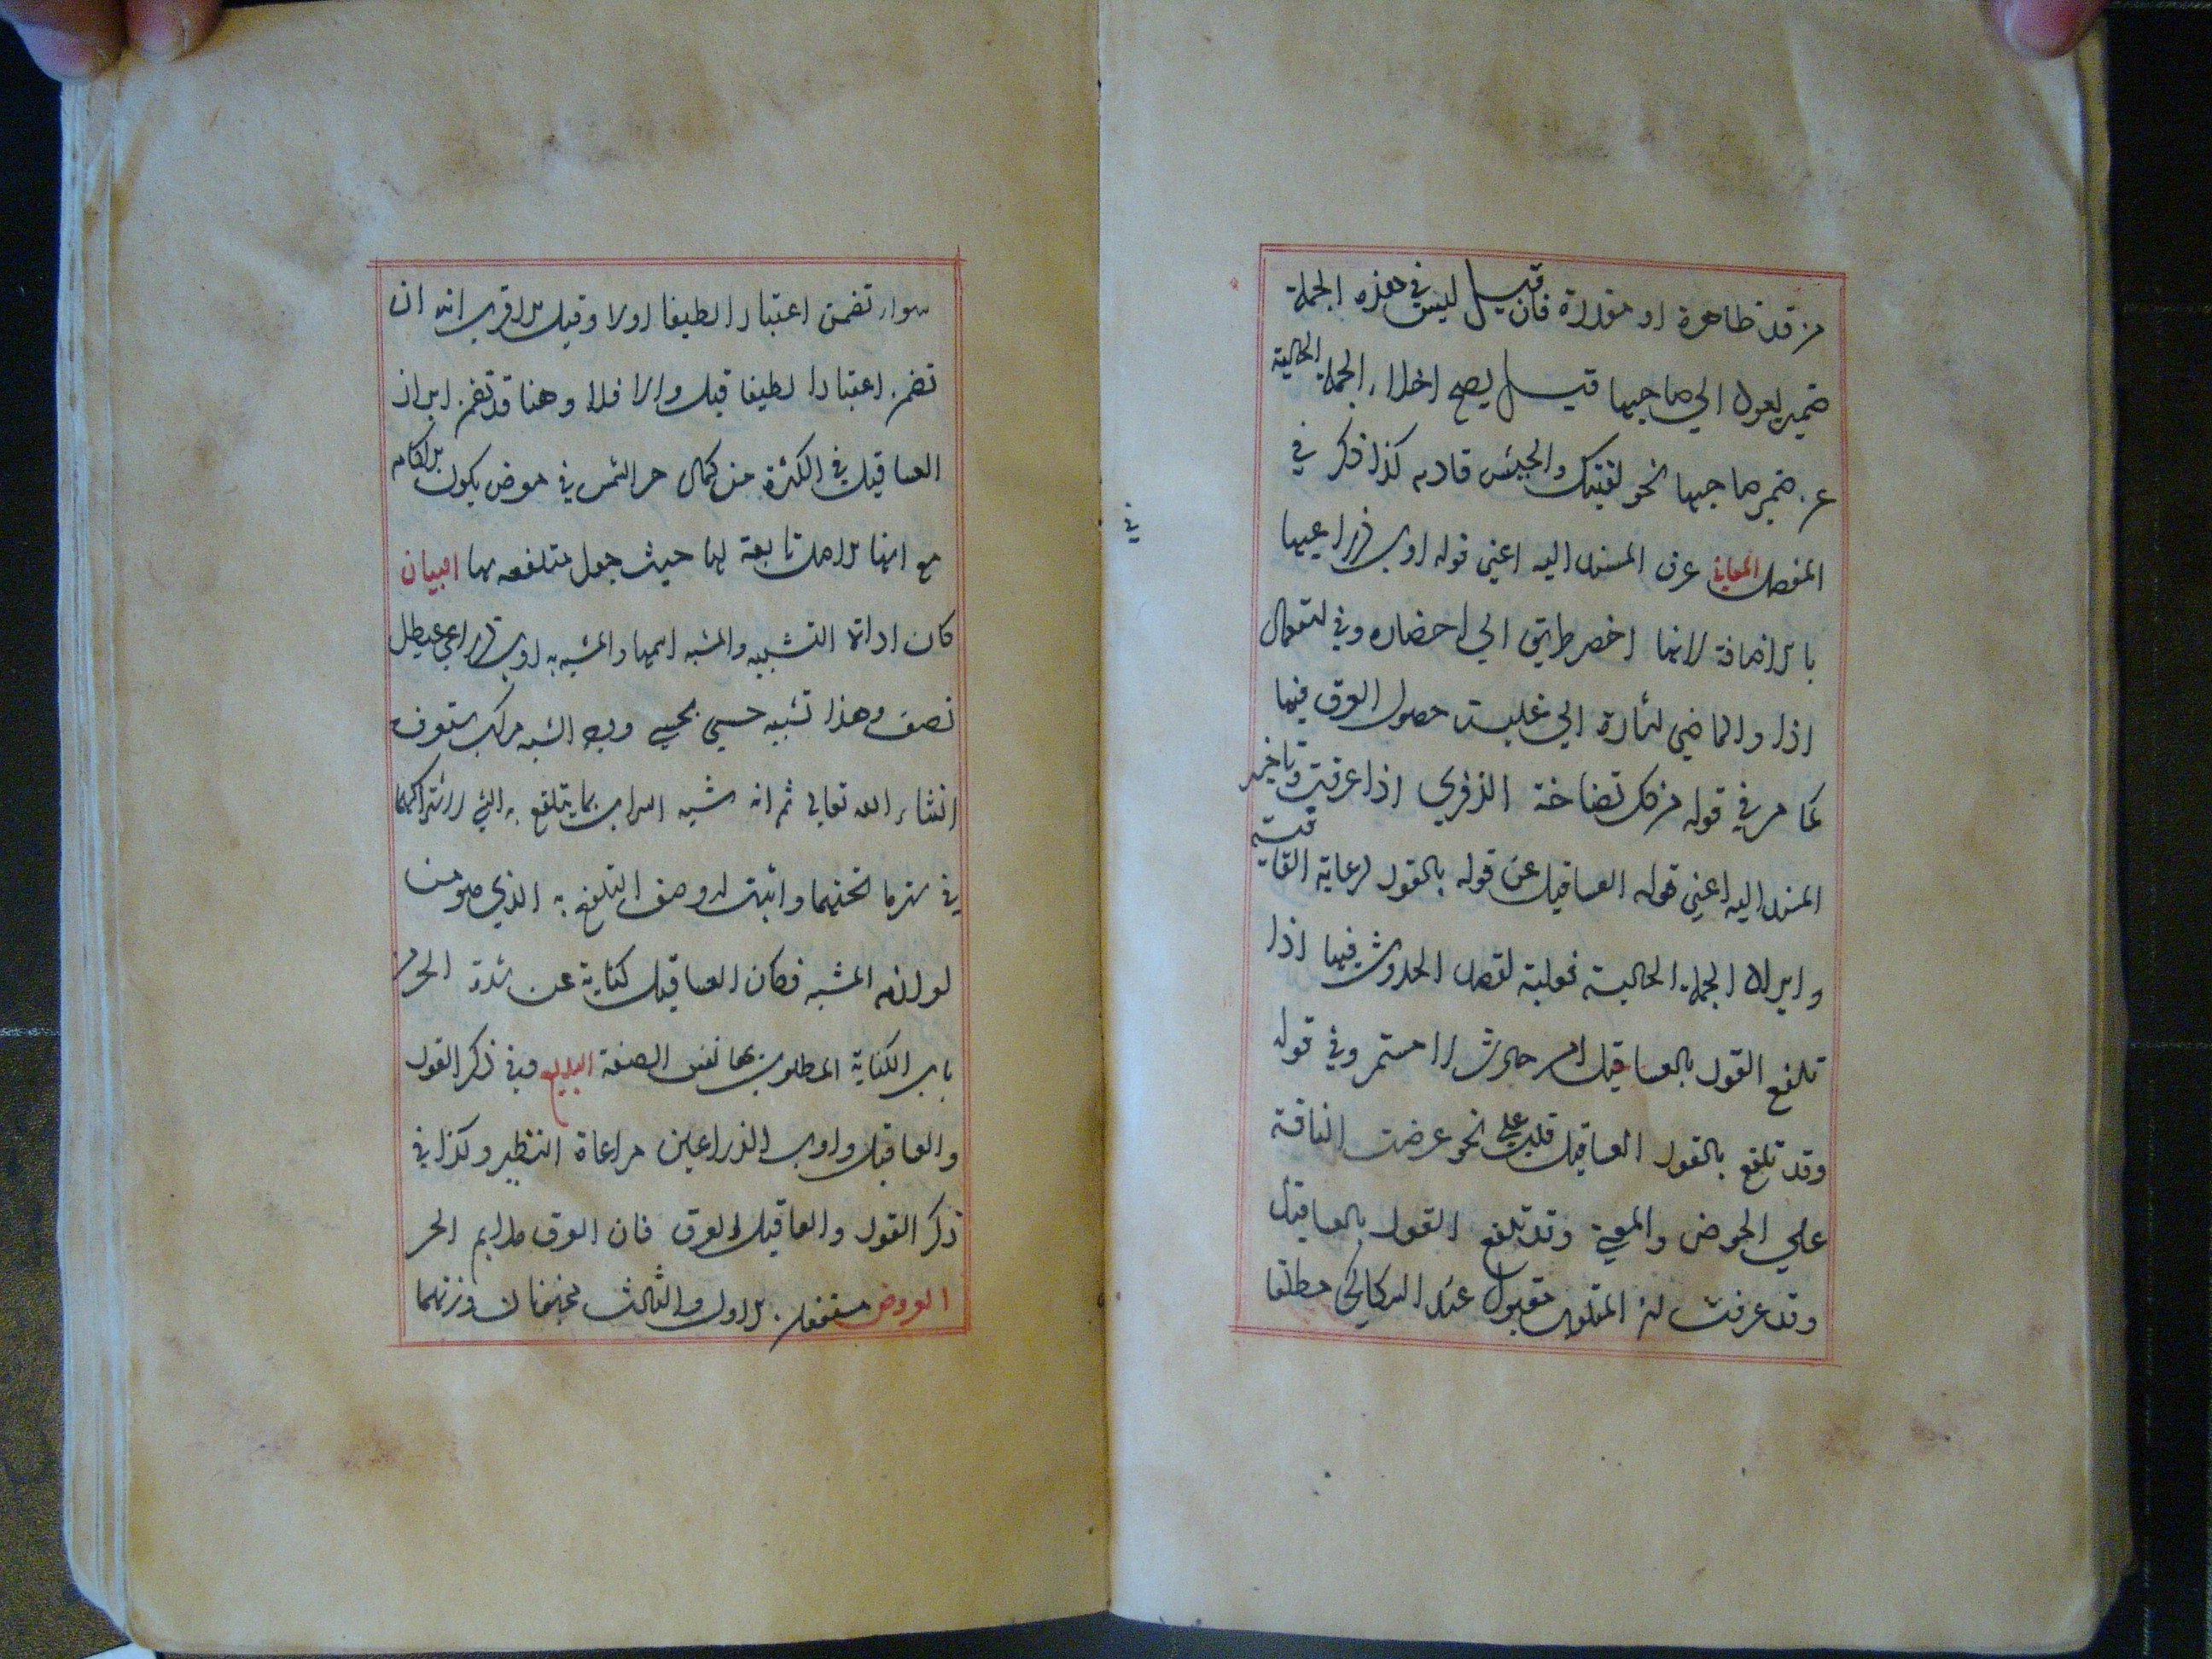 من قد ظاهرة او مقدرة فان قيل ليس في هذه الجملة
ضمير يعود الى صاحبها قيل يصح اخلاء الجملة الحالية
عن ضمير صاحبها نحو لقيتك والجيش قادم كذا ذكر في
المفصل المعاني عرف المسند اليه اعني قوله اوب ذراعيها
بالاضافة لانها اخصر طريق الى احضاره وفي استعمال
اذا والماضي اشارة الى غلبة حصول العرق فيها
كما مر في قوله من كل نضاخة الذفرى اذا عرقت وتاخير
المسند اليه اعني قوله العساقيل عن قوله بالقور لرعاية القافية
وايراد الجملة الحالية فعلية لقصد الحدوث فيها اذا
تلفع القور بالعساقيل امر حادث لا مستمر وفي قوله
وقد تلفع بالقور العساقيل قلب على نحو عرضت الناقة
على الحوض والمعنى وقد تلفع القور بالعساقيل
وقد عرفت ان المقلوب مقبول عند السكاكي مطلقا
في
سواء تضمن اعتبارا لطيفا اولا وقيل الاقرب انه ان
تضمن اعتبارا لطيفا قبل والا فلا وهنا قد تضمن ايراد
العساقيل في الكثرة من كمال حر الشمس في موضع يكون الاكام
مع انها الاصل تابعة لها حيث جعل متلفعه بها البيان
كان اداة التشبيه والمشبه اسمها والمشبه به اوب ذراعي عيطل
نصف وهذا تشبيه حسي بحسي ووجه الشبه مركب ستعرف
انشاء الله تعالى ثم انه شبه السراب بما يتلفع به الشيء لاشتراكهما
في ستر ما تحتهما واثبت له وصف التلفع به الذي هو من
لوازم المشبه فكان العساقيل كناية عن شدة الحر من
باب الكناية المطلوب بها نفس الصفة البديع وفي ذكر القور
والعساقيل واوب الذراعين مراعاة النظير وكذا في
ذكر القور والعساقيل والعرق فان العرق ملايم الحر
العروض مستفعلن الاول والثالث مخبونان وزنهما